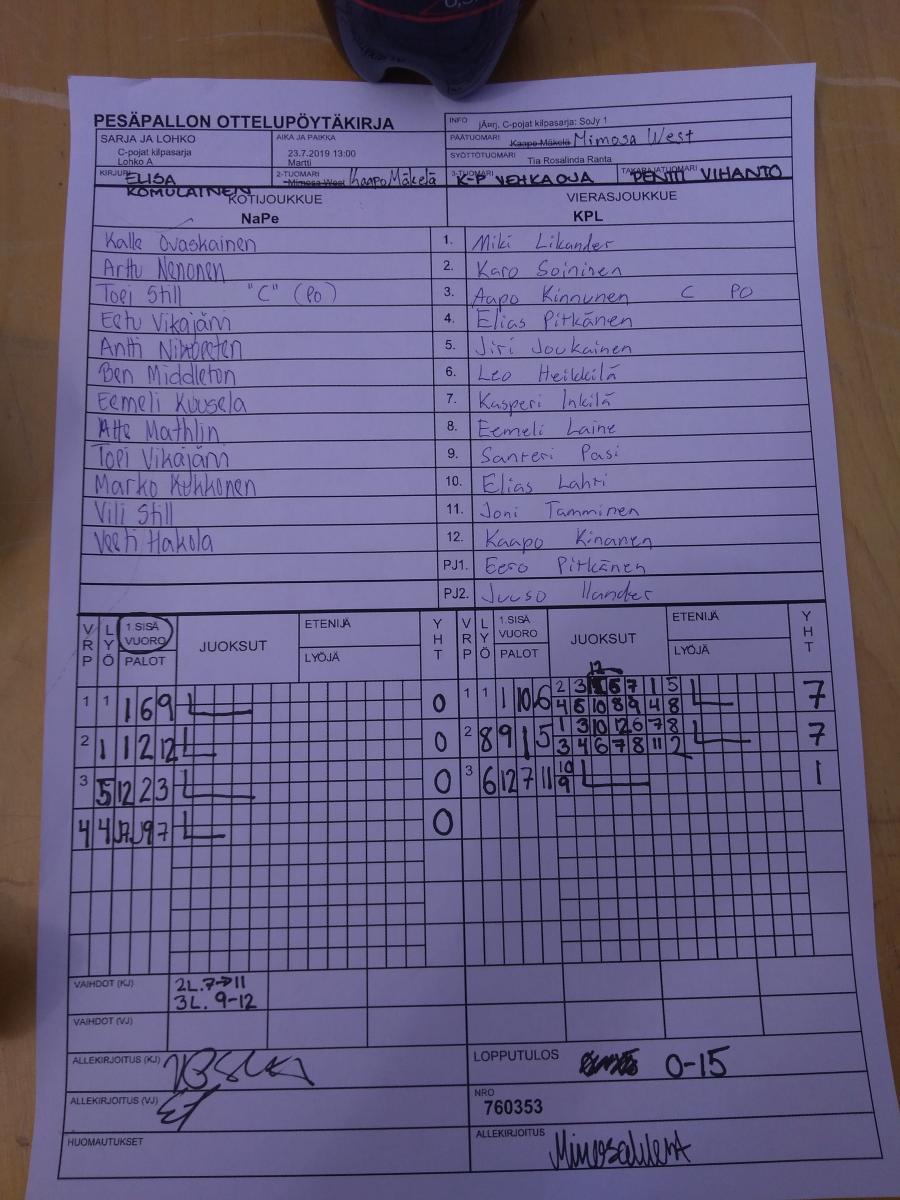 PESÄPALLON OTTELUPÖYTÄKIRJA
INFO jÄ¤rj, C-pojat kilpasarja: SoJy 1
SARJA JA LOHKO
C-pojat kilpasarja
Lohko A
AIKA JA PAIKKA
23.7.2019 13:00
Martti
PÄÄTUOMARI Kaapo Mäkelä Mimosa West
SYÖTTÖTUOMARI Tia Rosalinda Ranta
KIRJURI ELISA KOMULAINEN
2-TUOMARI Mimosa West Kaapo Mäkelä
3-TUOMARI K-P VEHKAOJA
TAKARAJATUOMARI PENTTI VIHANTO
KOTIJOUKKUE
NaPe
VIERASJOUKKUE
KPL
Kalle Ovaskainen 1. Miki Likander
Arttu Nenonen 2. Karo Soininen
Topi Still "C" (PO) 3. Aapo Kinnunen C PO
Eetu Vikajärvi 4. Elias Pitkänen
Antti 5. Jiri Joukainen
Ben Middleton 6. Leo Heikkilä
Eemeli Kuusela 7. Kasperi Inkilä
Atte Mathlin 8. Eemeli Laine
Topi Vikajärvi 9. Santeri Pasi
Marko Kukkonen 10. Elias Lahti
Vili Still 11. Joni Tamminen
Veeti Hakola 12. Kaapo Kinanen
PJ1. Eero Pitkänen
PJ2. Juuso Ilander
VRP LYÖ 1.SISÄ VUORO PALOT JUOKSUT ETENIJÄ LYÖJÄ YHT
VRP LYÖ 1.SISÄ VUORO PALOT JUOKSUT ETENIJÄ LYÖJÄ YHT
12
1 1 1 6 9 0
1 1 1 10 6 2 3 6 7 1 5 7
4 6 10 8 9 4 8
2 1 1 2 12 0
2 8 9 1 5 1 3 10 12 6 7 8 7
3 4 6 7 8 11 2
3 5 12 2 3 0
3 6 12 7 11 10 1
9
4 4 9 7 0
VAIHDOT (KJ) 2L. 7→11
3L. 9-12
VAIHDOT (VJ)
ALLEKIRJOITUS (KJ)
LOPPUTULOS 0-15
ALLEKIRJOITUS (VJ)
NRO
760353
HUOMAUTUKSET
ALLEKIRJOITUS